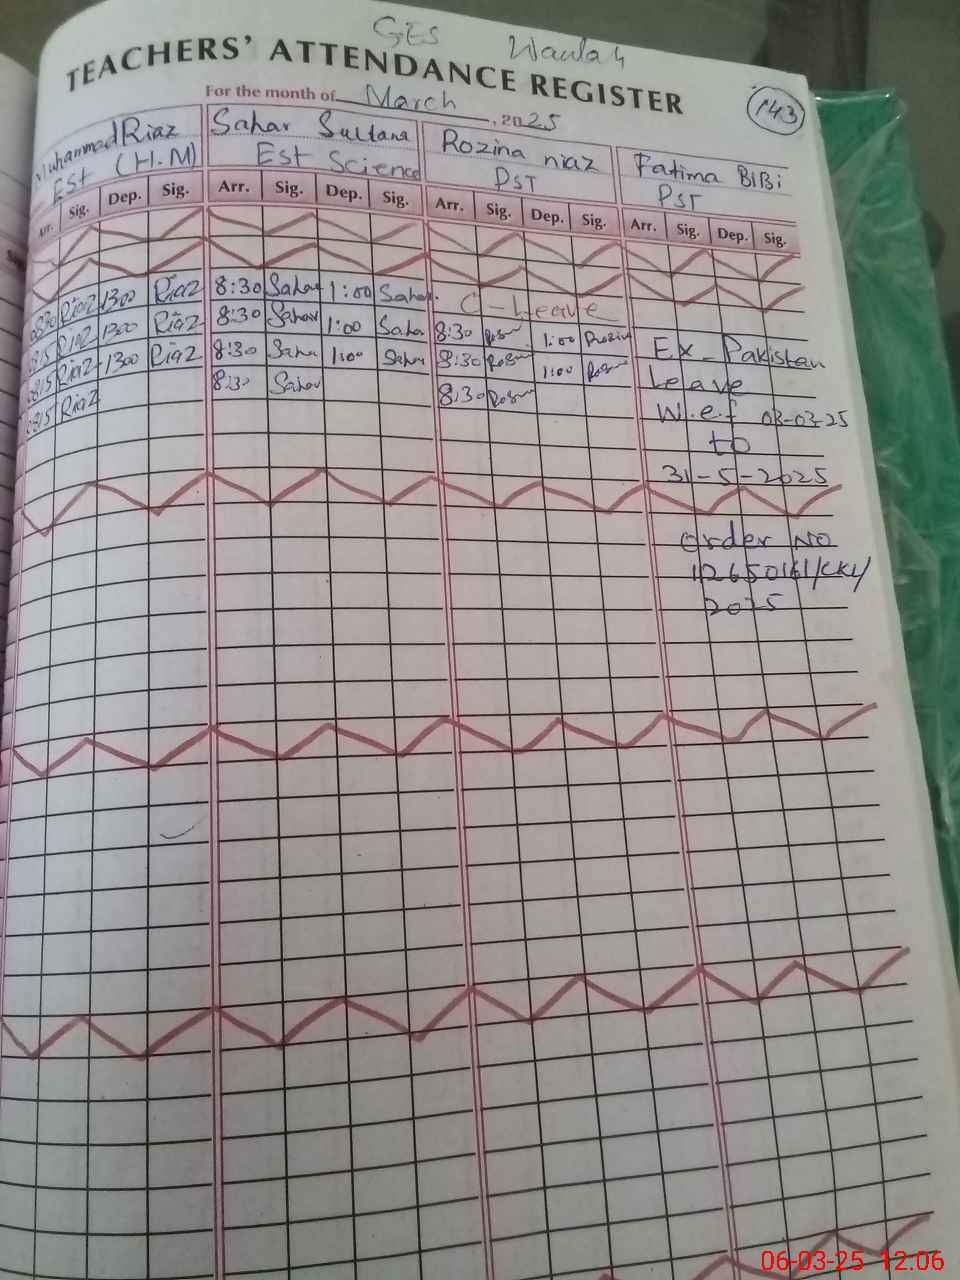 GES
TEACHERS' ATTENDANCE REGISTER
For the month of March, 2025
143
Muhammad Riaz Sahar Sultana Rozina niaz Fatima BiBi
Est (H.M) Est Science PST PST
Arr. Sig. Dep. Sig. Arr. Sig. Dep. Sig. Arr. Sig. Dep. Sig. Arr. Sig. Dep. Sig.
0830 Riaz 1300 Riaz 8:30 Sahar 1:00 Sahar C-Leave
0815 Riaz 1300 Riaz 8:30 Sahar 1:00 Saha 8:30 1:00 Rozin Ex-Pakistan
0815 Riaz 1300 Riaz 8:30 Saha 1:00 Saha 8:30 1:00 Leave
0815 Riaz 8:30 Sahar 8:30 W.e.f 03-03-25
to
31-5-2025
Order No
/CKL/
2025
06-03-25 12.06